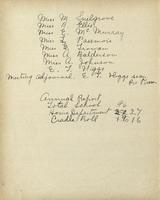 Miss M. Snelgrove
Miss A. Ellis
Miss E. McMurray
Miss L.
Miss B.
Miss A. Balderson
Miss A. Johnson
E. T. Higgs
Meeting Adjourned. E. T. Higgs sec.
Annual Report
Total School
Home Department 27
Cradle Roll 16